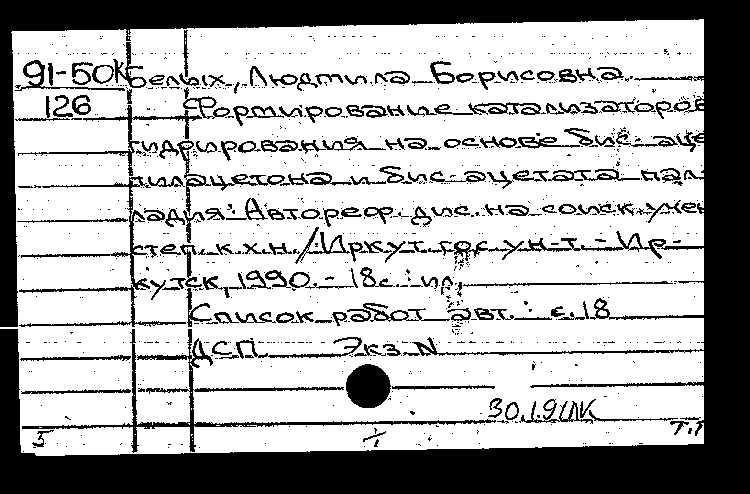 91-50К Белых, Людмила Борисовна
126 Формирование катализаторов
гидрирования на основе бис-аце
тилацетона и бис-ацетата пал-
ладия: Автореф. дис. на соиск. учен
степ. к.х.н. /:Иркут. гос. ун-т. - Ир-
кутск, 1990. - 18с. : ил,
Список работ авт. : с. 18
ДСП Экз N
30.1.91
5